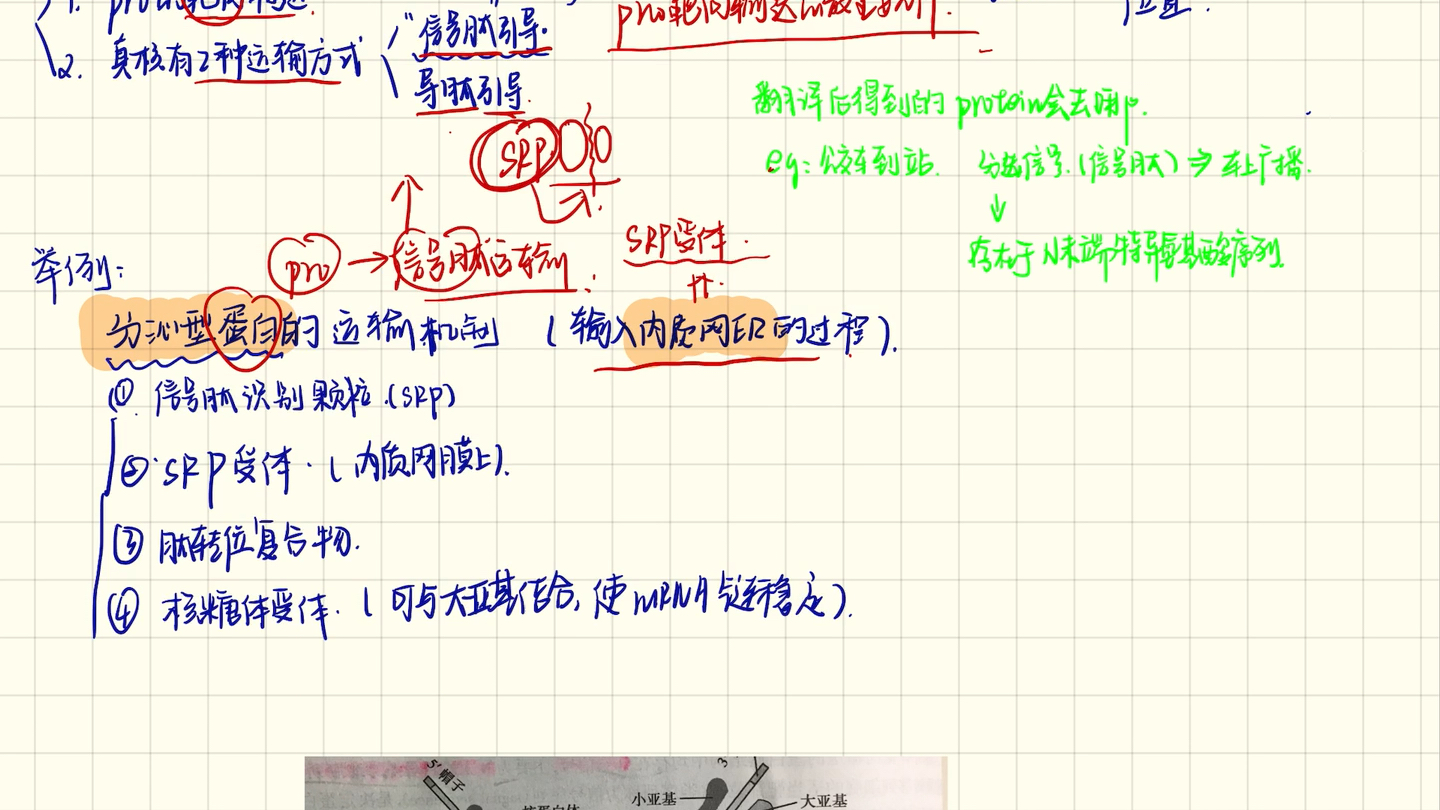 2. 真核有2种运输方式
"信号肽引导.
导肽引导.
翻译后得到的protein会去哪.
eg: 公交车到站. 分选信号.(信号肽) ⇒ 车上广播.
↓
存在于N末端特异氨基酸序列.
SRP
举例:
pro → 信号肽 运输
SRP受体.
分泌型蛋白的运输机制 (输入内质网ER的过程).
① 信号肽识别颗粒.(SRP)
② SRP受体.(内质网膜上).
③ 肽转位复合物.
④ 核糖体受体.(可与大亚基结合,使mRNA链稳定).
5′帽子
小亚基
大亚基
3